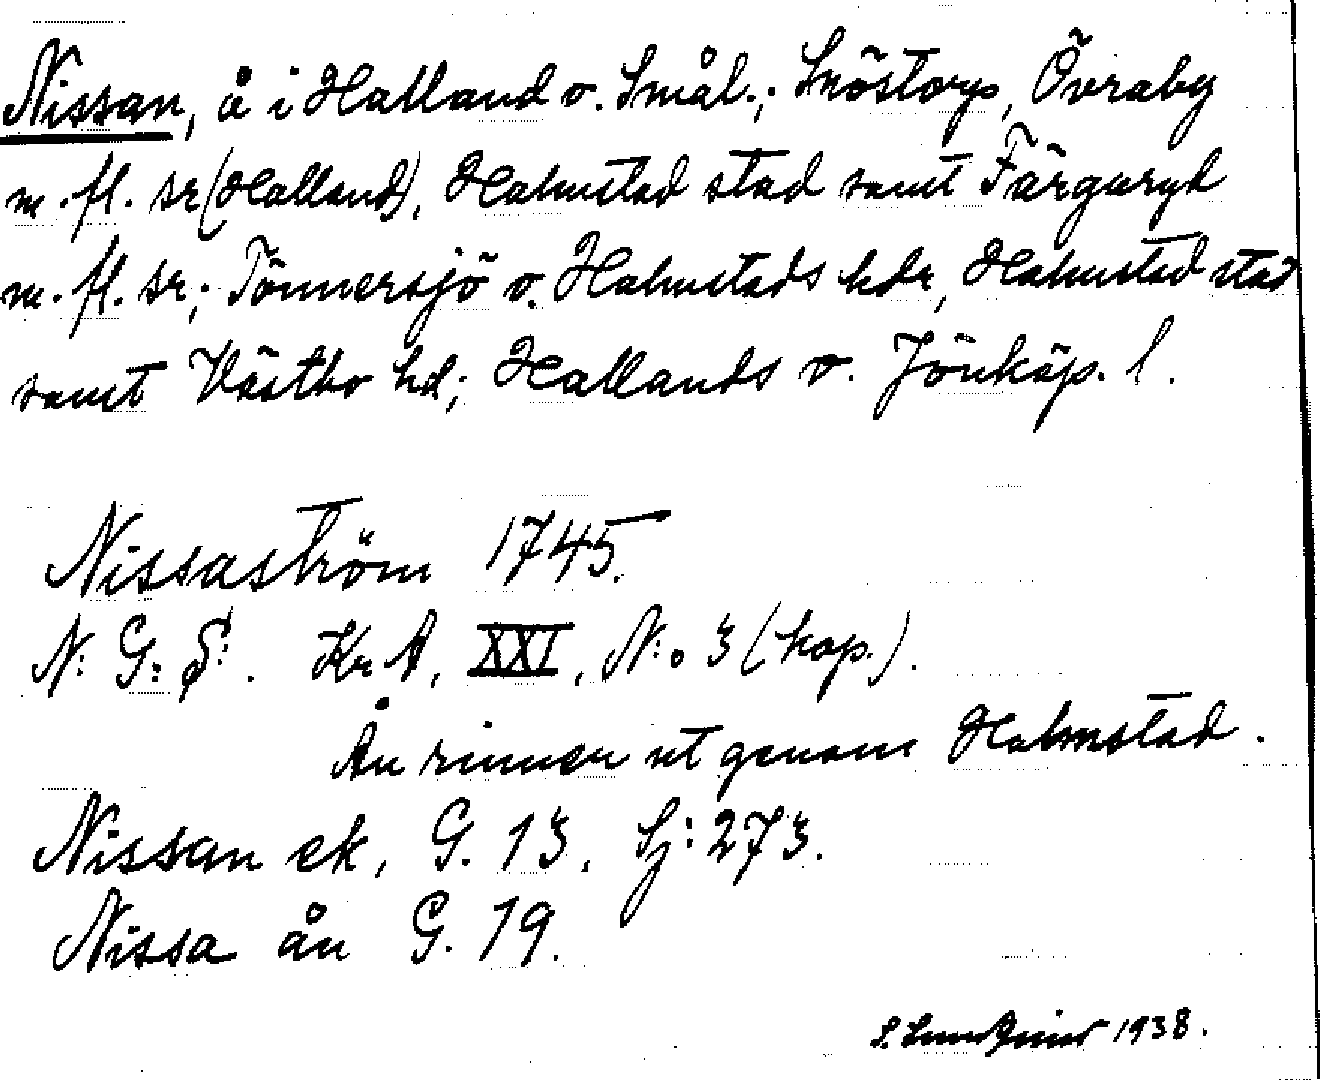 Nissan, å i Halland o. Smål.; Snöstorp, Övraby
m. fl. sr (Halland), Halmstad stad samt Färgaryd
m. fl. sr; Tönnersjö o. Halmstads hdr, Halmstad stad
samt Västbo hd; Hallands o. Jönköp. l.
Nissaström 1745.
N: G: S: . Kr A, XXI, N:o 3 (kop.).
Ån rinner ut genom Halmstad.
Nissan ek, G. 13, Sj: 273.
Nissa ån G. 19.
1938.